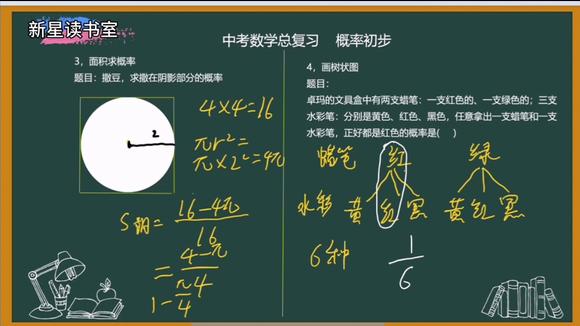 新星读书室
中考数学总复习 概率初步
3，面积求概率
题目：撒豆，求撒在阴影部分的概率
2
4×4=16
πr²=
π×2²=4π
S阴=16-4π/16
=4-π/4
1-π/4
4，画树状图
题目：
卓玛的文具盒中有两支蜡笔：一支红色的、一支绿色的；三支
水彩笔：分别是黄色、红色、黑色，任意拿出一支蜡笔和一支
水彩笔，正好都是红色的概率是( )
蜡笔 红 绿
水彩 黄 红 黑 黄 红 黑
6种 1/6